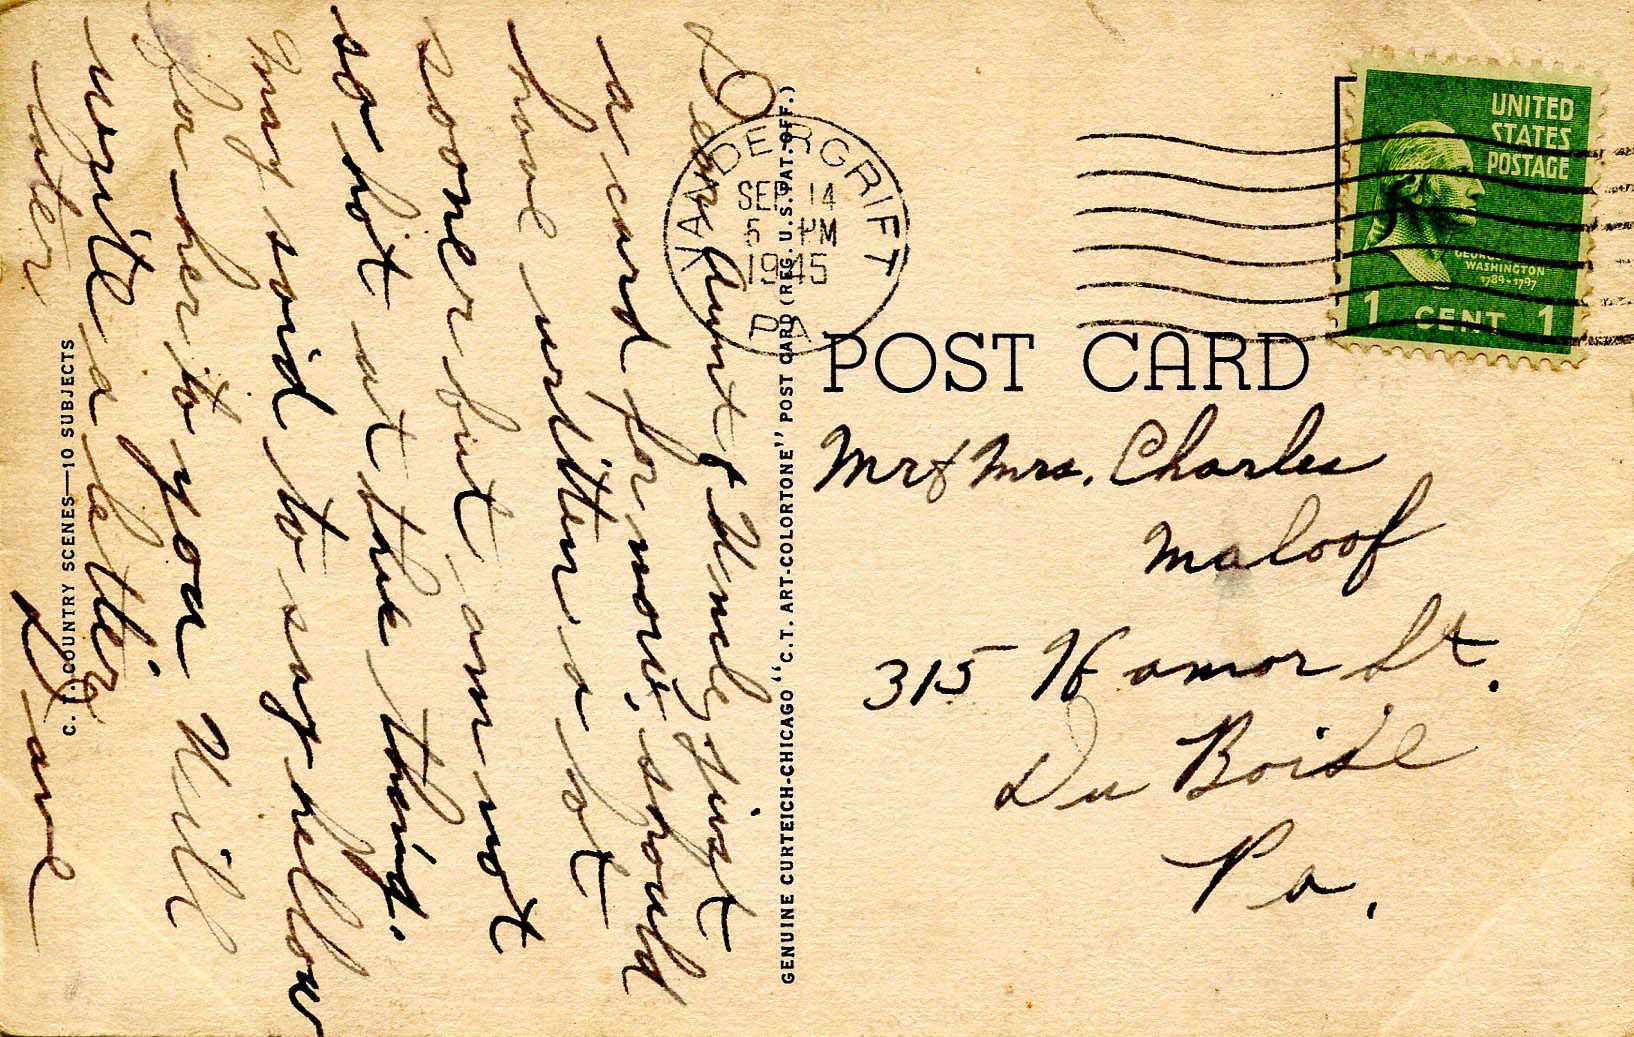 Dear Aunt & Uncle, just
a card for now, should
have written a lot
sooner but am not
so hot at the thing.
Inay said to say hellow
for her to you Will
write a letter
later
Dave
C. T. COUNTRY SCENES—10 SUBJECTS
GENUINE CURTEICH-CHICAGO "C.T. ART-COLORTONE" POST CARD (REG. U.S. PAT. OFF.)
VANDERGRIFT
SEP 14
5 PM
1945
PA
UNITED
STATES
POSTAGE
GEORGE
WASHINGTON
1789-1797
1 CENT 1
POST CARD
Mr & Mrs. Charles
Maloof
315 Hamor St.
Du Boise
Pa.